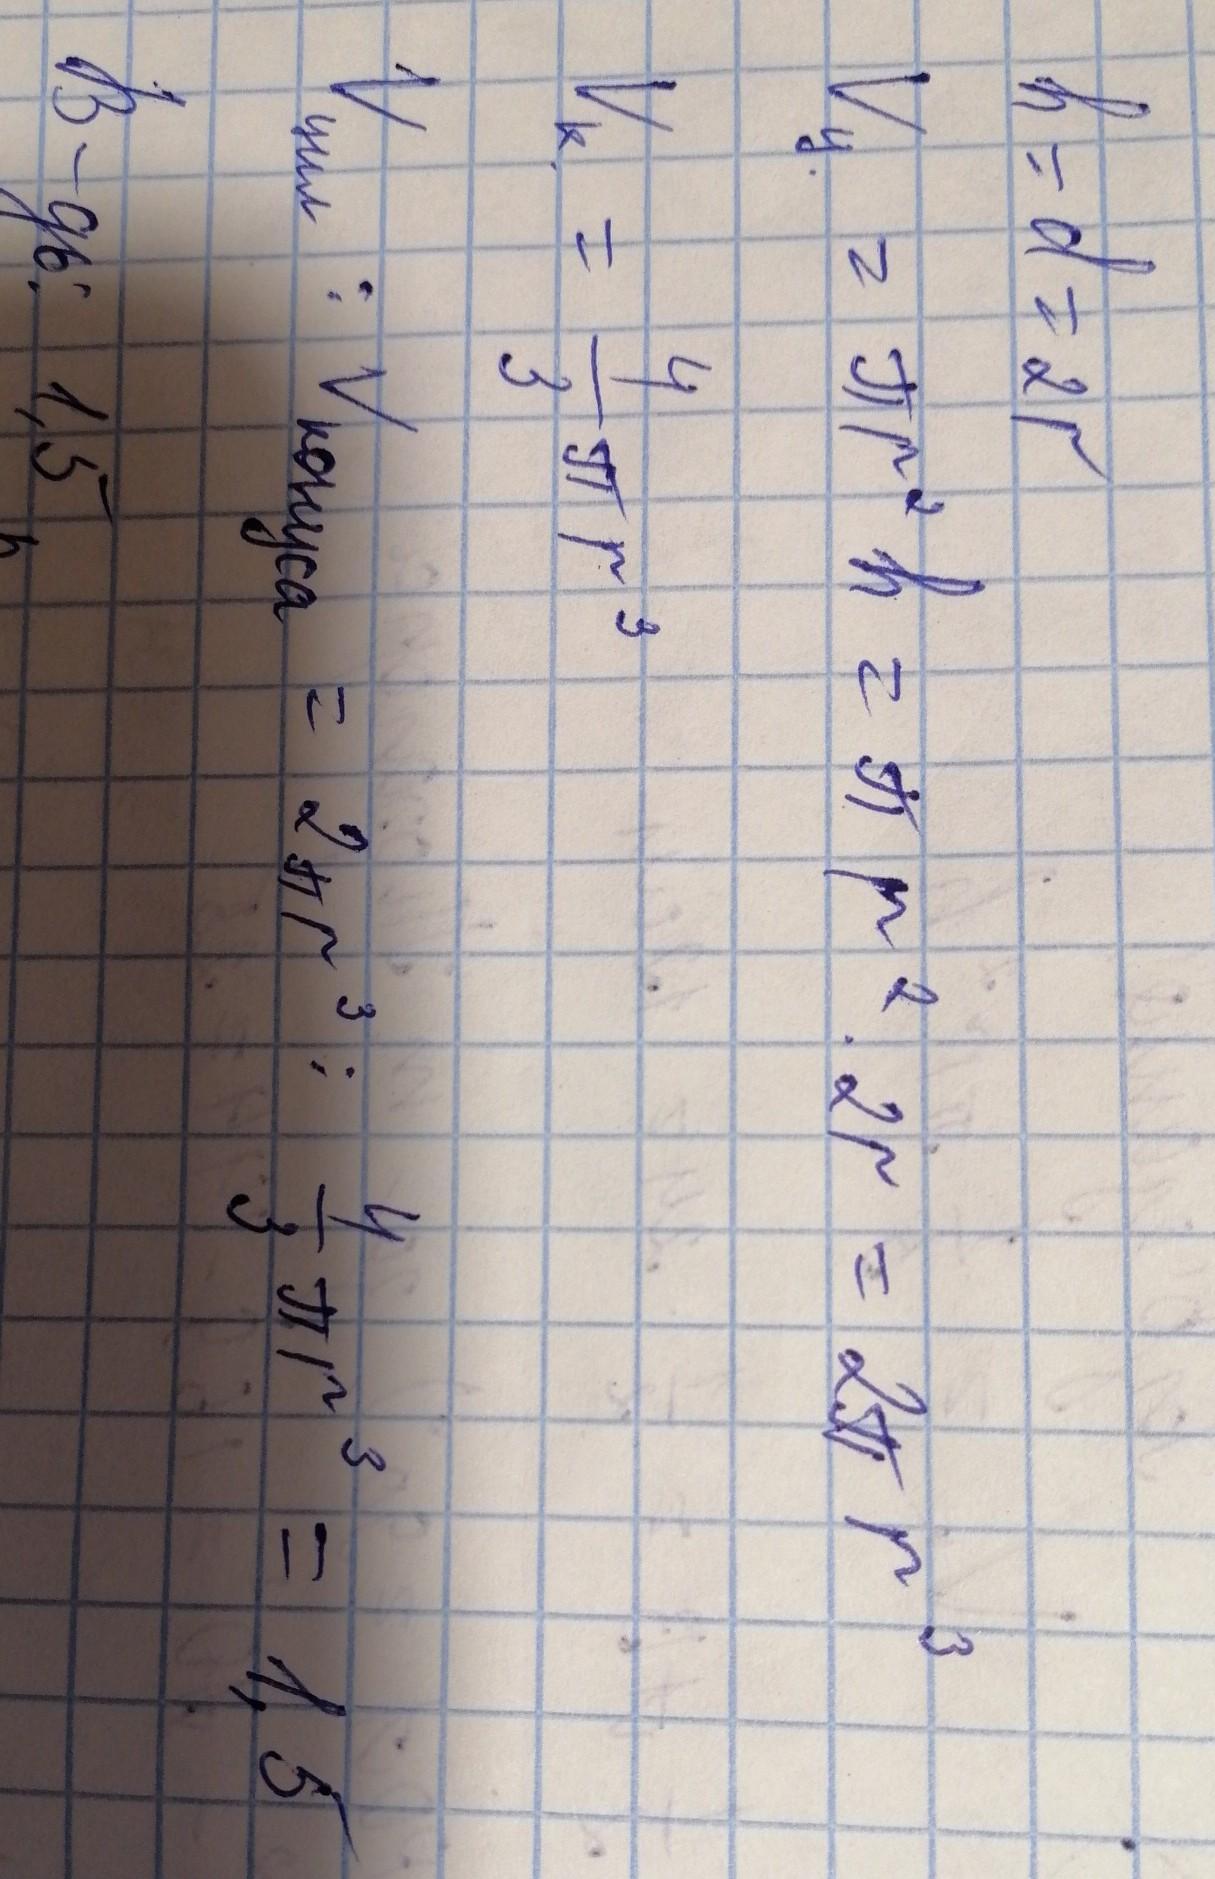 h = d = 2r
Vц. = πr² h = π r² · 2r = 2π r³
Vк. = 4/3 π r³
Vцил : Vконуса = 2πr³ : 4/3 πr³ = 1,5
В-дь: 1,5